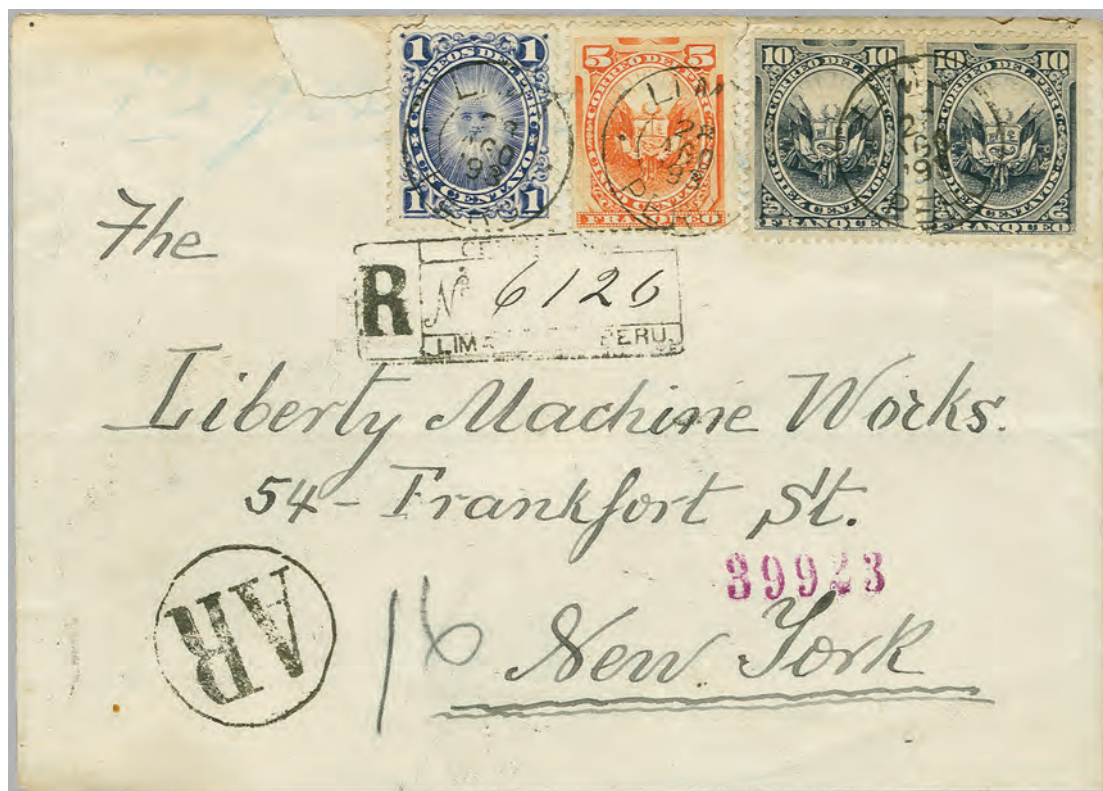 1 1
CORREOS DEL PERU
UN CENTAVO
1 1
5 5
CORREO DEL PERU
CINCO CENTAVOS
FRANQUEO
10 10
CORREO DEL PERU
DIEZ CENTAVOS
FRANQUEO
10 10
CORREO DEL PERU
DIEZ CENTAVOS
FRANQUEO
LIM
28
The
R
Nº 6126
LIMA PERU
Liberty Machine Works.
54 - Frankfort St.
39923
AR
16
New York